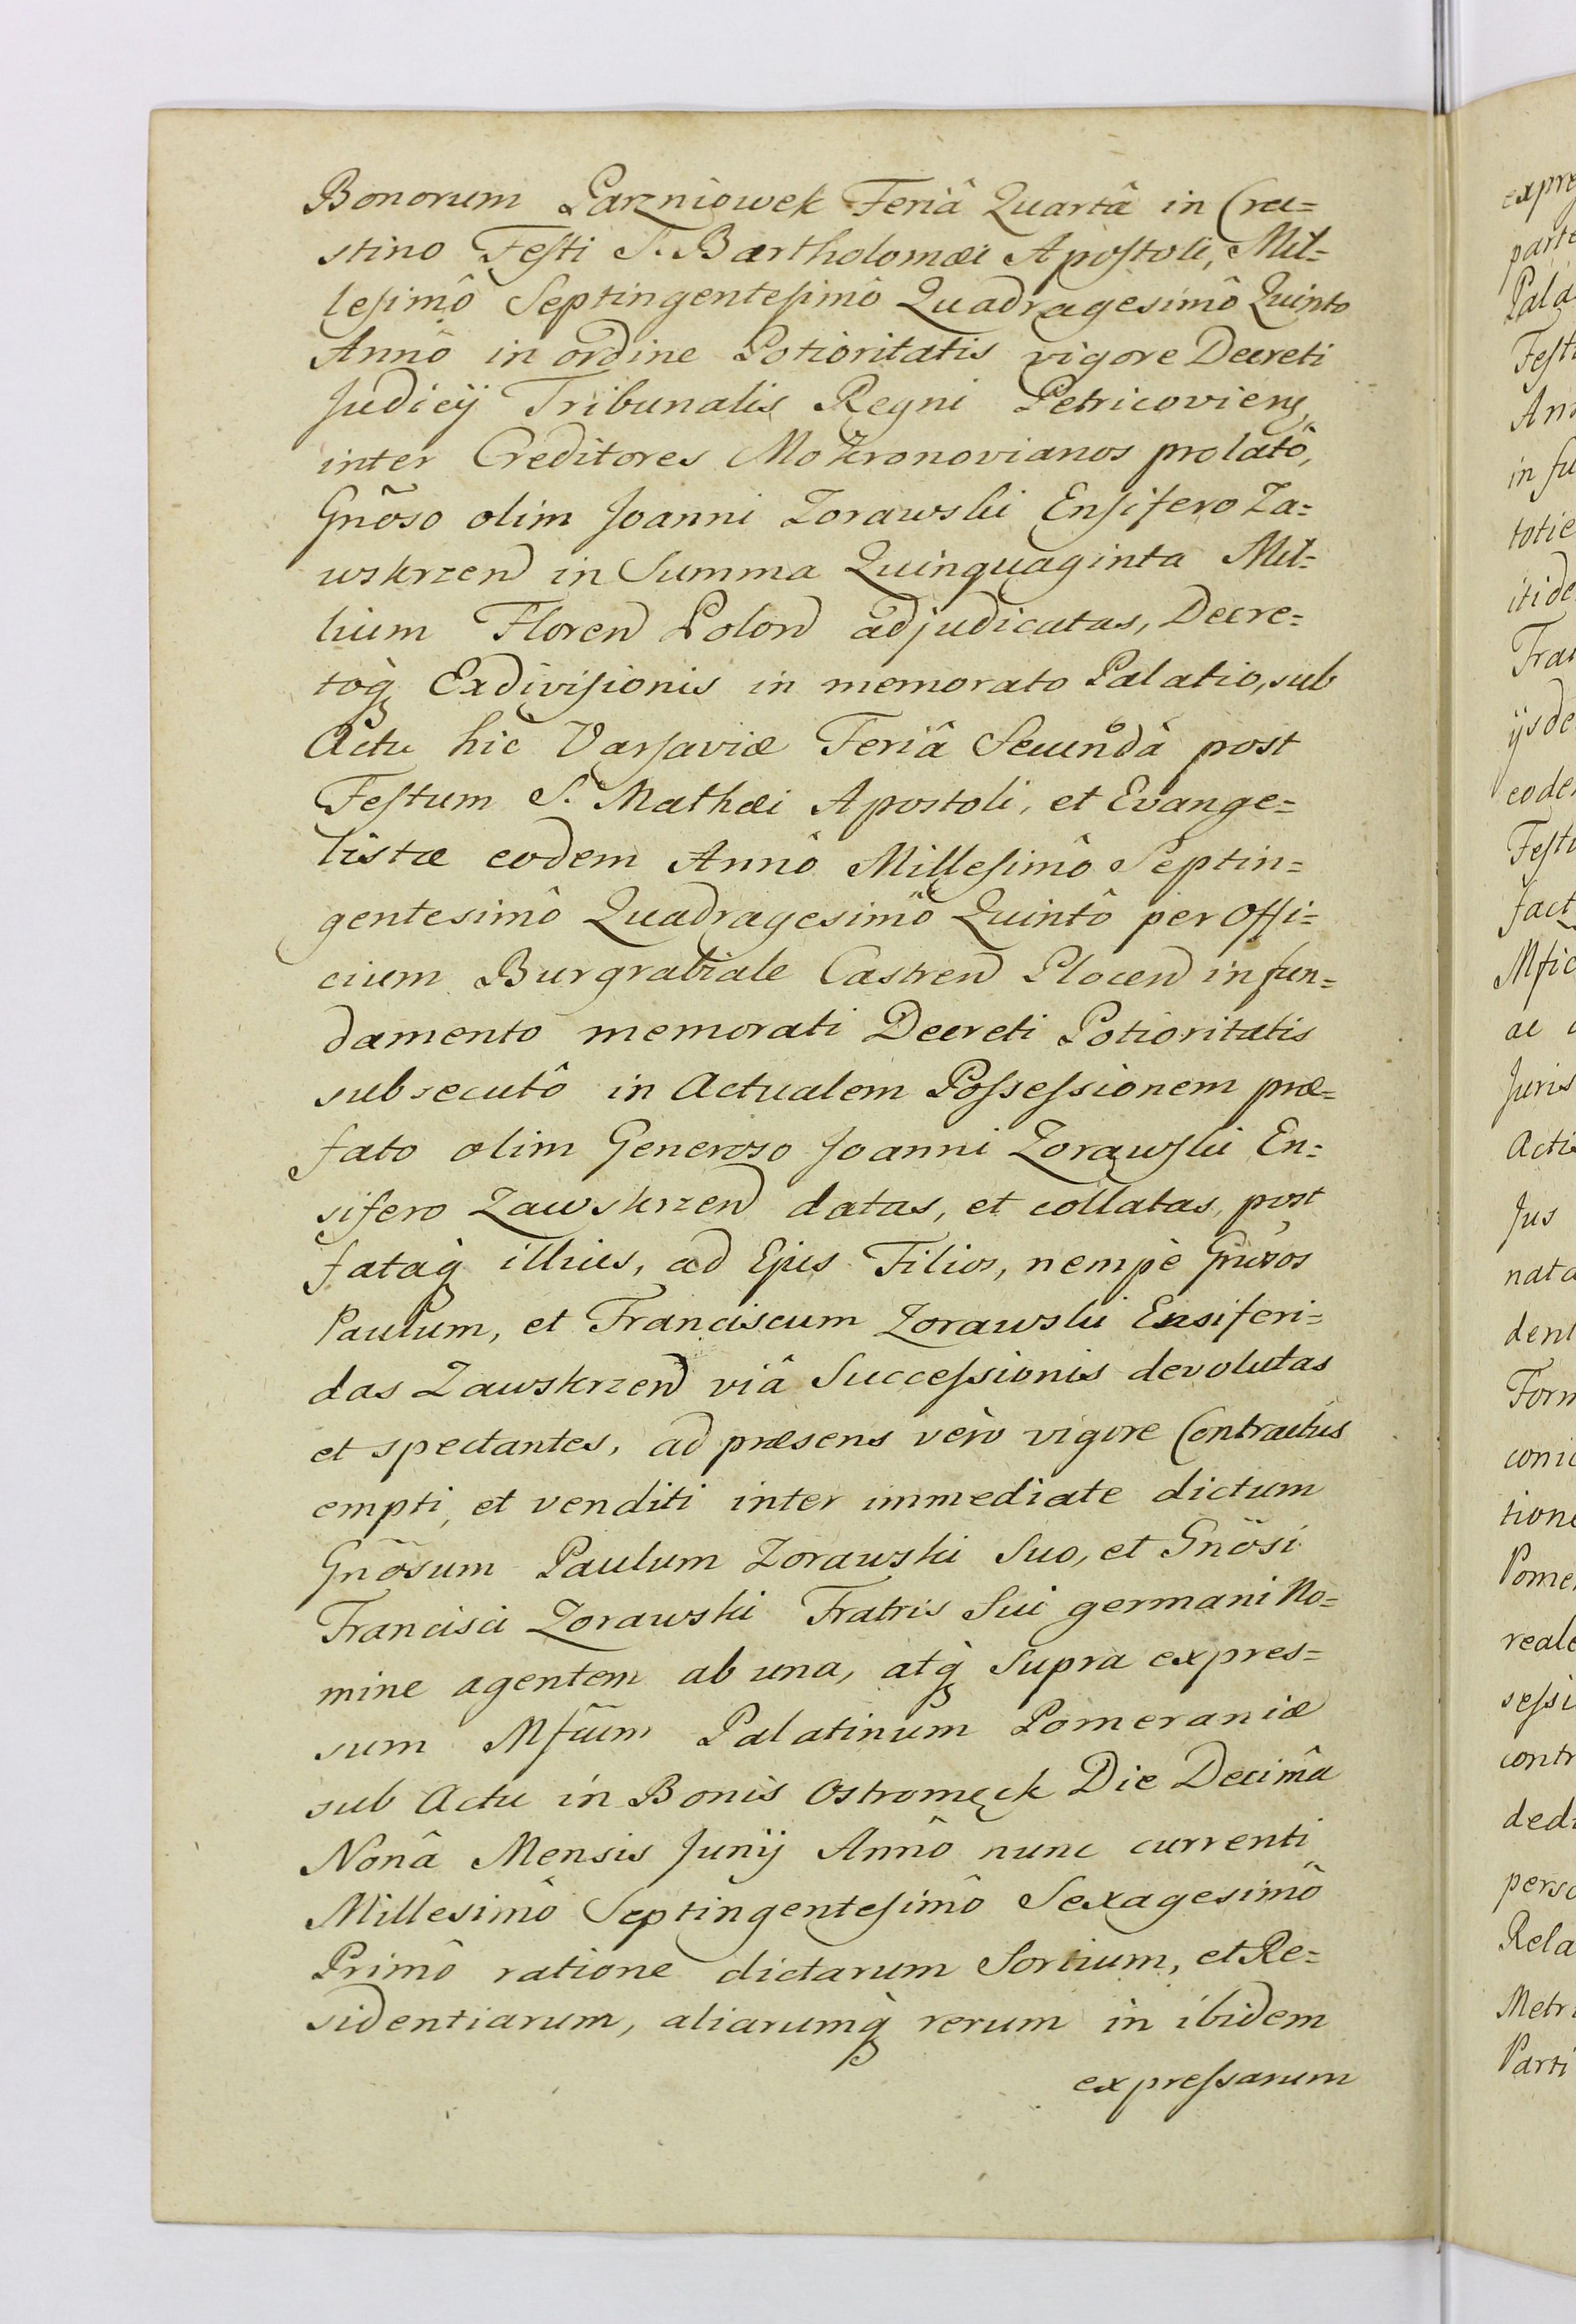 Bonorum Parzniowek Feriâ Quartâ in Cra=
stino Festi S. Bartholomæi Apostoli, Mil=
lesimô Septingentesimô Quadragesimô Quinto
Annô in ordine Potioritatis vigore Decreti
Judicÿ Tribunalis Regni Petricoviens,
inter Creditores Mokronovianos prolatô,
Gnõso olim Joanni Zorawski Ensifero Za=
wskrzen in Summa Quinquaginta Mil=
lium Floren Polon adjudicatas, Decre=
toq̀ Exdivisionis in memorato Palatio, sub
Actu hic Varsaviæ Feriâ Secundâ post
Festum S. Mathæi Apostoli, et Evange=
listæ eodem Annô Millesimô Septin=
gentesimô Quadragesimô Quintô per Offi=
cium Burgrabiale Castren Plocen in fun=
damento memorati Decreti Potioritatis
subsecutô in Actualem Possessionem præ=
fato olim Generoso Joanni Zorawski En=
sifero Zawskrzen datas, et collatas, post
fataq̀ illius, ad Ejus Filios, nempè Gnõsos
Paulum, et Franciscum Zorawski Ensiferi=
das Zawskrzen viâ Successionis devolutas
et spectantes, ad præsens verò vigore Contractûs
empti, et venditi inter immediate dictum
Gnõsum Paulum Zorawski Suo, et Gnõsi
Francisci Zorawski Fratris Sui germani No=
mine agentem ab una, atq̀ Supra expres=
sum Mfũm Palatinum Pomeraniæ
sub Actu in Bonis Ostromęck Die Decimâ
Nonâ Mensis Junÿ Annô nunc currenti
Millesimô Septingentesimô Sexagesimô
Primô ratione dictarum Sortium, et Re=
sidentiarum, aliarumq̀ rerum in ibidem
expressarum
expre
parte
Pala
Festi
Ann
in fu
totie
itide
Fran
ÿsde
eode
Festu
fact
Mfic
ac
Juris
Acti
Jus
nata
dent
Form
conic
tione
Pome
reale
sessi
contr
dedi
perso
Rela
Metri
Parti